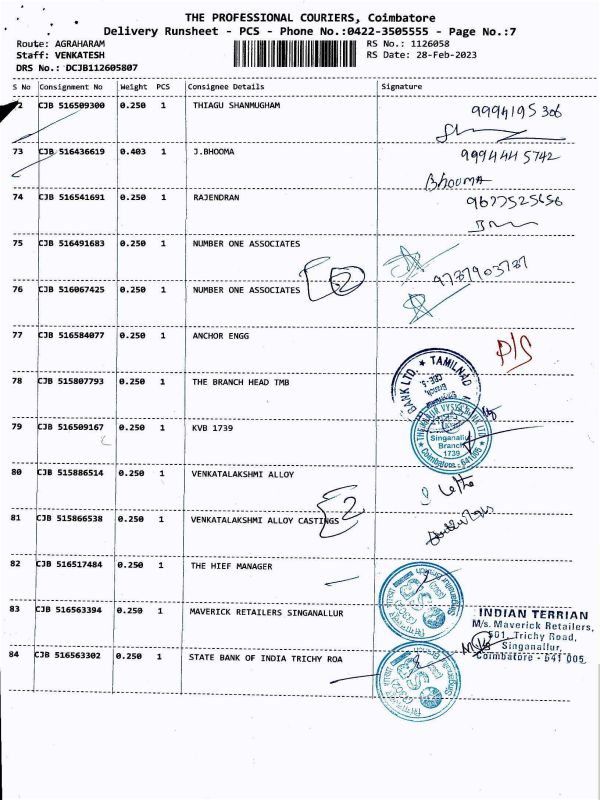 THE PROFESSIONAL COURIERS, Coimbatore
Delivery Runsheet - PCS - Phone No.:0422-3505555 - Page No.:7
Route: AGRAHARAM RS No.: 1126058
Staff: VENKATESH RS Date: 28-Feb-2023
DRS No.: DCJB112605807
S No Consignment No Weight PCS Consignee Details Signature
CJB 516509300 0.250 1 THIAGU SHANMUGHAM 9994195306
73 CJB 516436619 0.403 1 J.BHOOMA 9994445742
Bhooma
74 CJB 516541691 0.250 1 RAJENDRAN 9677525656
75 CJB 516491683 0.250 1 NUMBER ONE ASSOCIATES
9787903787
76 CJB 516067425 0.250 1 NUMBER ONE ASSOCIATES 2
77 CJB 516584077 0.250 1 ANCHOR ENGG P/S
TAMILNAD
BANK LTD.
CBE-5.
78 CJB 515807793 0.250 1 THE BRANCH HEAD TMB
79 CJB 516509167 0.250 1 KVB 1739
THE KARUR VYSYA BANK LTD
Singanallur
Branch
1739
Coimbatore - 641005
80 CJB 515886514 0.250 1 VENKATALAKSHMI ALLOY
81 CJB 515866538 0.250 1 VENKATALAKSHMI ALLOY CASTINGS 2
82 CJB 516517484 0.250 1 THE HIEF MANAGER
83 CJB 516563394 0.250 1 MAVERICK RETAILERS SINGANALLUR
SBI
INDIAN TERRIAN
M/s. Maverick Retailers,
501, Trichy Road,
Singanallur,
Coimbatore - 641 005.
84 CJB 516563302 0.250 1 STATE BANK OF INDIA TRICHY ROA
SBI